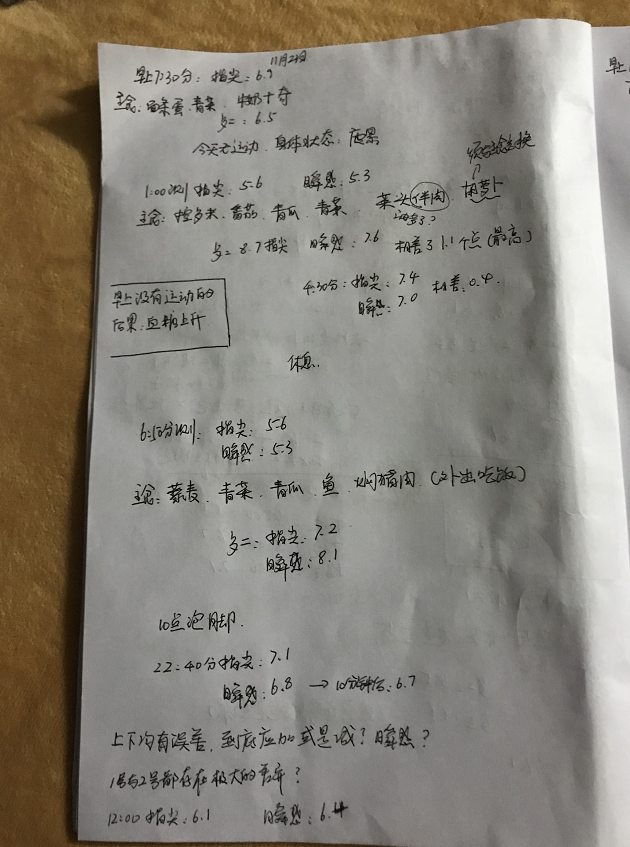 11月24日
早上7:30分: 指尖: 6.9
主食: 蛋、青菜、牛奶
身体状态: 疲累
今天无运动
与主食互换
1:00测 指尖: 5.6 瞬感: 5.3
主食: 番茄、青瓜、青菜 菜头伴肉 胡萝卜
8.7指尖 瞬感: 7.6 相差了1.1个点(最高)
4:30分: 指尖: 7.4 相差: 0.4
瞬感: 7.0
早上没有运动的
后果: 血糖上升
休息..
6:50分测: 指尖: 5.6
瞬感: 5.3
主食: 荞麦、青菜、青瓜、鱼、焖猪肉、(外出吃饭)
歺二: 指尖: 7.2
瞬感: 8.1
10点泡脚.
22:40分指尖: 7.1
瞬感: 6.8 → 10分钟后: 6.7
上下均有误差, 到底应加或是减? 瞬感?
1号与2号都存在极大的差异?
12:00 指尖: 6.1 瞬感: 6.4